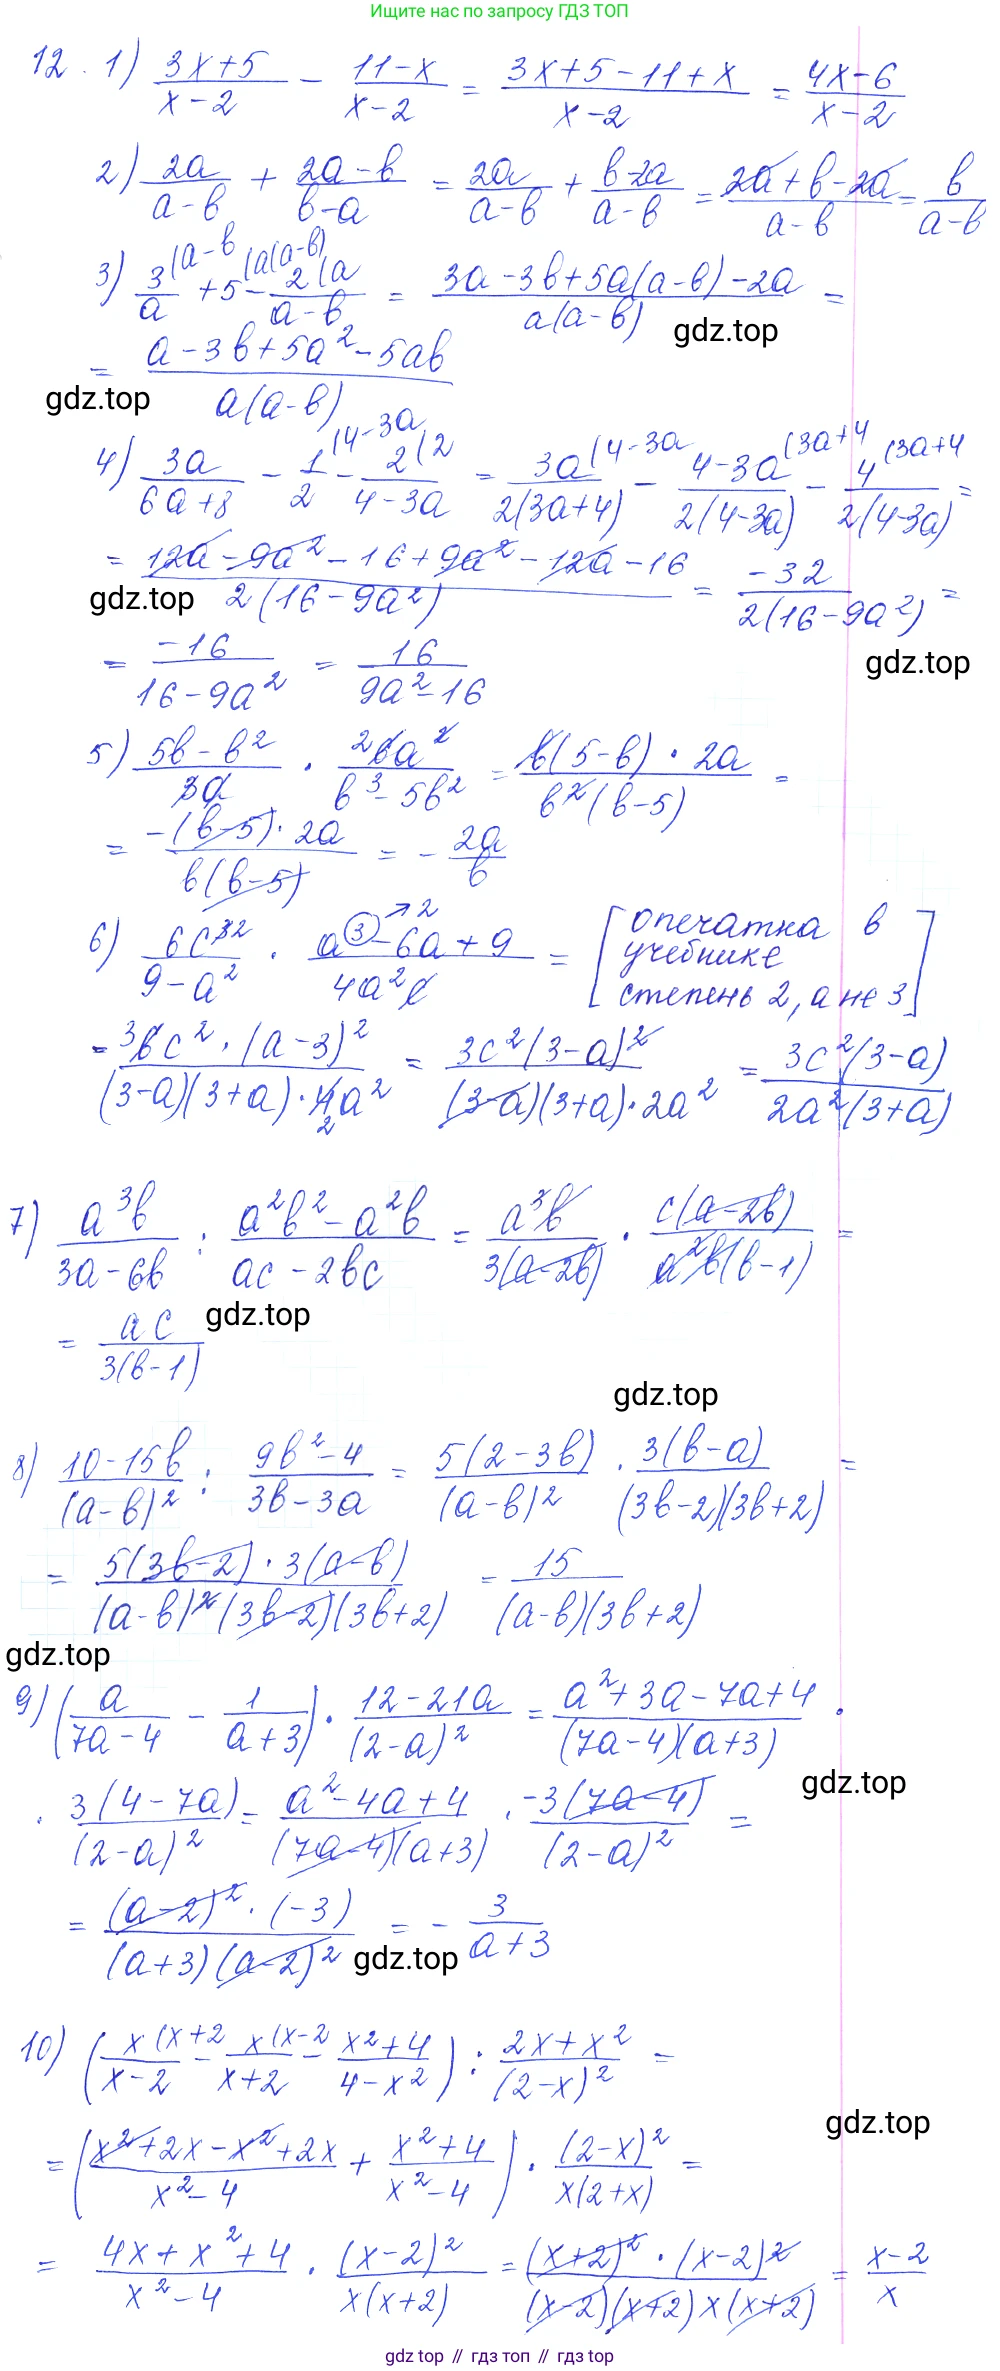 Ищите нас по запросу ГДЗ ТОП
12. 1) (3x+5)/(x-2) - (11-x)/(x-2) = (3x+5-11+x)/(x-2) = (4x-6)/(x-2)
2) 2a/(a-b) + (2a-b)/(b-a) = 2a/(a-b) + (b-2a)/(a-b) = (2a+b-2a)/(a-b) = b/(a-b)
3) 3(a-b/a + 5(a(a-b) - 2(a/(a-b) = (3a-3b+5a(a-b)-2a)/(a(a-b)) =
gdz.top
= (a-3b+5a²-5ab)/(a(a-b))
gdz.top
4) 3a/(6a+8) - 1(4-3a/2 - 2(2/(4-3a) = 3a(4-3a/(2(3a+4)) - (4-3a)(3a+4/(2(4-3a)) - 4(3a+4/(2(4-3a)) =
= (12a-9a²-16+9a²-12a-16)/(2(16-9a²)) = -32/(2(16-9a²)) =
gdz.top
gdz.top
= -16/(16-9a²) = 16/(9a²-16)
5) (5b-b²)/3a · 26a²/(b³-5b²) = b(5-b)·2a/(b²(b-5)) =
= -(b-5)·2a/(b(b-5)) = -2a/b
6) 6c³²/(9-a²) · (a³→2-6a+9)/(4a²c) = [опечатка в учебнике степень 2, а не 3]
= ³6c²·(a-3)²/((3-a)(3+a)·4₂a²) = 3c²(3-a)²/((3-a)(3+a)·2a²) = 3c²(3-a)/(2a²(3+a))
7) a³b/(3a-6b) : (a²b²-a²b)/(ac-2bc) = a³b/(3(a-2b)) · c(a-2b)/(a²b(b-1)) =
= ac/(3(b-1))
gdz.top
gdz.top
8) (10-15b)/(a-b)² : (9b²-4)/(3b-3a) = 5(2-3b)/(a-b)² · 3(b-a)/((3b-2)(3b+2)) =
= 5(3b-2)·3(a-b)/((a-b)²(3b-2)(3b+2)) = 15/((a-b)(3b+2))
gdz.top
9) (a/(7a-4) - 1/(a+3)) · (12-21a)/(2-a)² = (a²+3a-7a+4)/((7a-4)(a+3)) ·
gdz.top
· 3(4-7a)/(2-a)² = (a²-4a+4)/((7a-4)(a+3)) · -3(7a-4)/(2-a)² =
= (a-2)²·(-3)/((a+3)(a-2)²) = -3/(a+3)
gdz.top
10) (x(x+2/(x-2) - x(x-2/(x+2) - (x²+4)/(4-x²)) : (2x+x²)/(2-x)² =
gdz.top
= ((x²+2x-x²+2x)/(x²-4) + (x²+4)/(x²-4)) · (2-x)²/(x(2+x)) =
= (4x+x²+4)/(x²-4) · (x-2)²/(x(x+2)) = (x+2)²·(x-2)²/((x-2)(x+2)x(x+2)) = (x-2)/x
gdz.top // гдз топ // gdz top